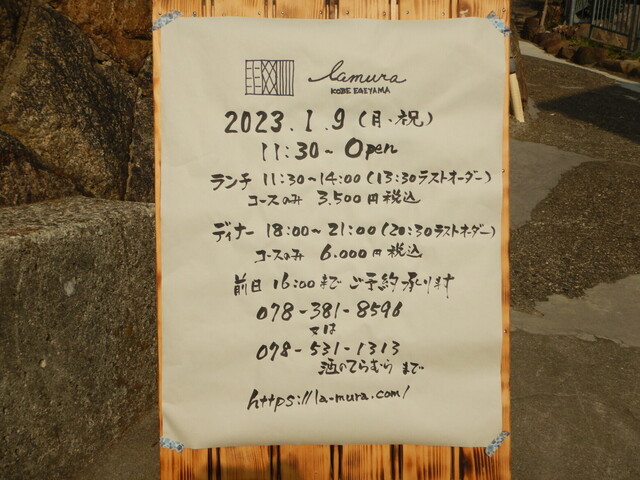 lamura
KOBE EGEYAMA
2023.1.9(月・祝)
11:30~ Open
ランチ 11:30~14:00(13:30ラストオーダー)
コースのみ 3.500円税込
ディナー 18:00~21:00(20:30ラストオーダー)
コースのみ 6.000円税込
前日16:00まで ご予約承ります
078-381-8596
又は
078-531-1313
酒のてらむら まで
https://la-mura.com/